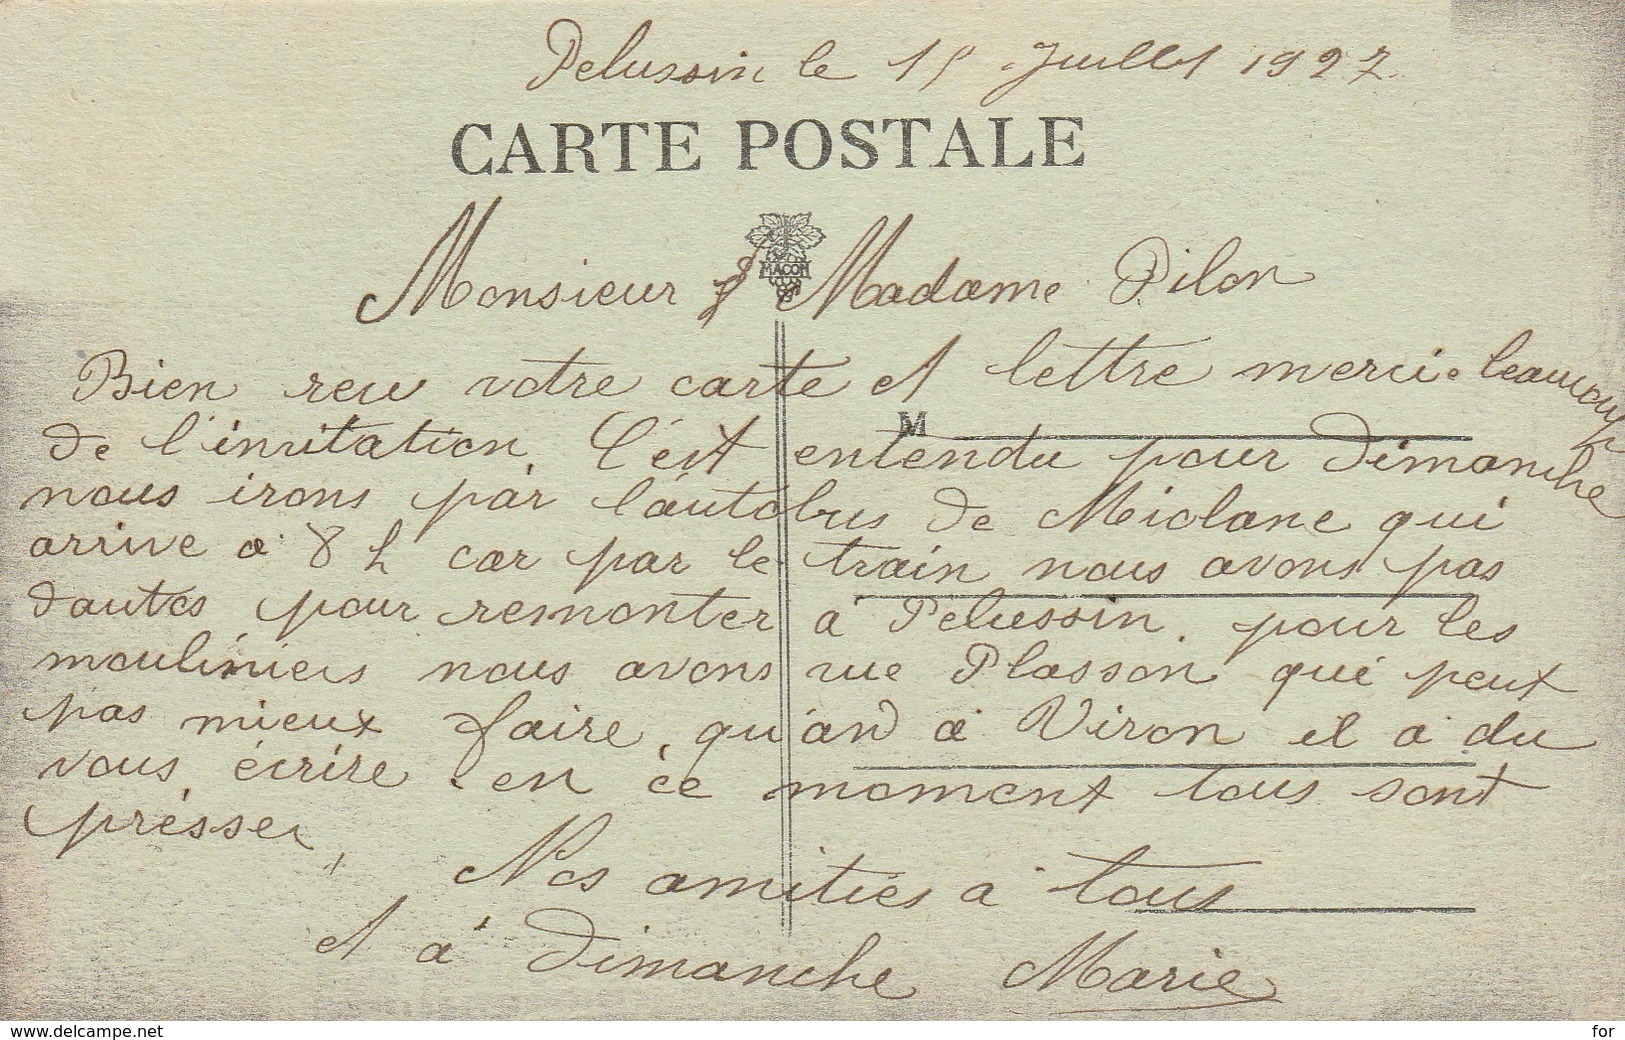 Pelussin le 15 Juillet 1927.
CARTE POSTALE
MACON
Monsieur & Madame Pilon
Bien reçu votre carte et lettre merci beaucoup
M
de l'invitation, C'est entendu pour Dimanche
nous irons par l'autobus de Miolane qui
arrive a 8 h car par le train nous avons pas
dautes pour remonter à Pelussin. pour les
mouliniers nous avons vue Plasson qui peut
pas mieux faire, qu'and à Viron il a du
vous écrire. en ce moment tous sont
présser,
Nos amitiés à tous
et à Dimanche Marie
www.delcampe.net
for